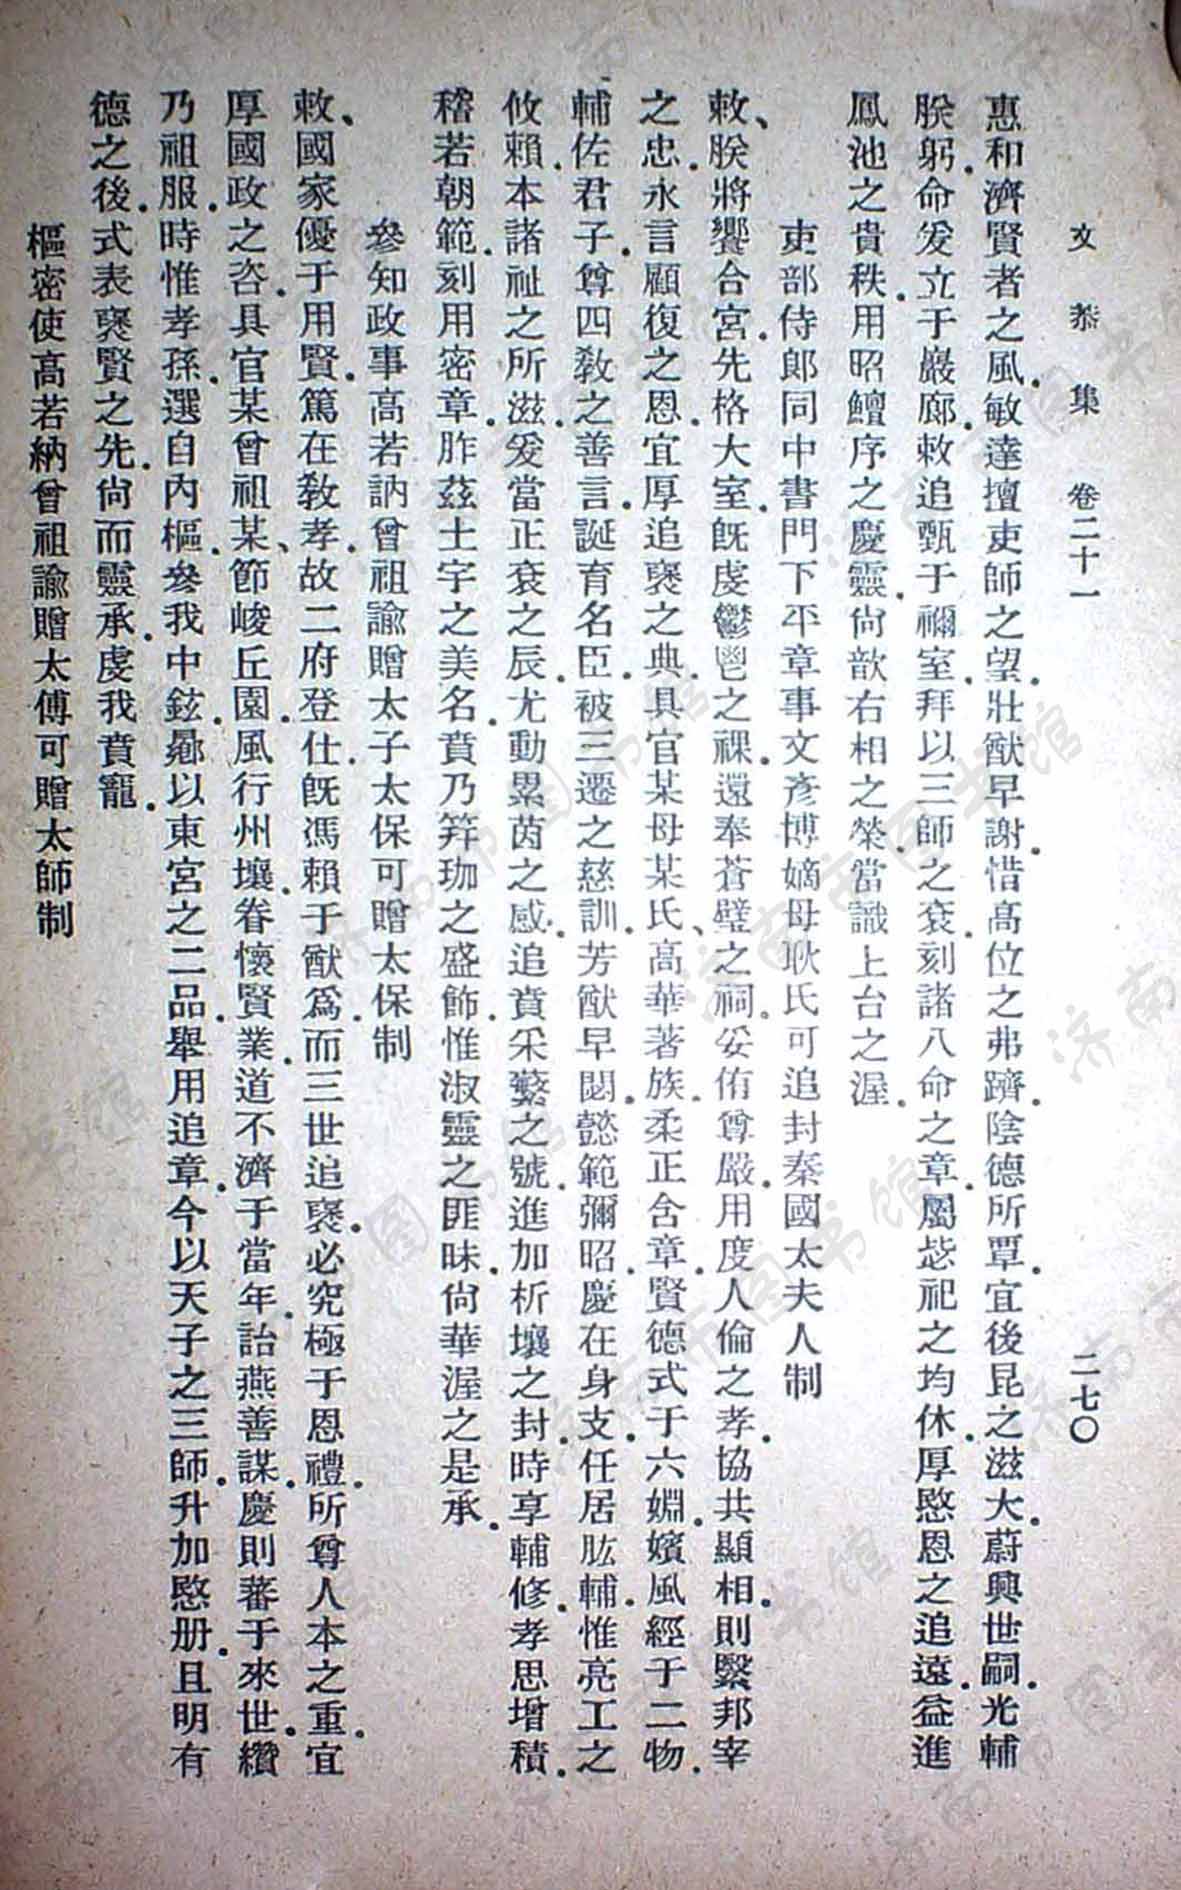 文恭集 卷二十一 二七〇
惠和濟賢者之風。敏達擅吏師之望。壯猷早謝。惜高位之弗躋。陰德所覃。宜後昆之滋大。蔚興世嗣。光輔
朕躬。命爰立于巖廊。敕追甄于禰室。拜以三師之袞。刻諸八命之章。屬毖祀之均休。厚愍恩之追遠。益進
鳳池之貴秩。用昭鱣序之慶靈。尚歆右相之榮。當識上台之渥。
吏部侍郎同中書門下平章事文彥博嫡母耿氏可追封秦國太夫人制
敕、朕將饗合宮。先格大室。既虔鬱鬯之祼。還奉蒼璧之祠。妥侑尊嚴。用度人倫之孝。協共顯相。則繫邦宰
之忠。永言顧復之恩。宜厚追褒之典。具官某母某氏、高華著族。柔正含章。賢德式于六婣。嬪風經于二物。
輔佐君子。尊四教之善言。誕育名臣。被三遷之慈訓。芳猷早閟。懿範彌昭。慶在身支。任居肱輔。惟亮工之
攸賴。本諸祉之所滋。爰當正袞之辰。尤動累茵之感。追賁采蘩之號。進加析壤之封。時享輔修。孝思增積。
稽若朝範。刻用密章。胙茲土宇之美名。賁乃笄珈之盛飾。惟淑靈之匪昧。尚華渥之是承。
參知政事高若訥曾祖諭贈太子太保可贈太保制
敕、國家優于用賢。篤在教孝。故二府登仕。既馮賴于猷爲。而三世追褒。必究極于恩禮。所尊人本之重。宜
厚國政之咨。具官某曾祖某、節峻丘園。風行州壤。眷懷賢業。道不濟于當年。詒燕善謀。慶則蕃于來世。纘
乃祖服。時惟孝孫。選自內樞。參我中鉉。曏以東宮之二品。舉用追章。今以天子之三師。升加愍册。且明有
德之後。式表褒賢之先。尚而靈承。虔我賁寵。
樞密使高若納曾祖諭贈太傅可贈太師制
济南市图书馆